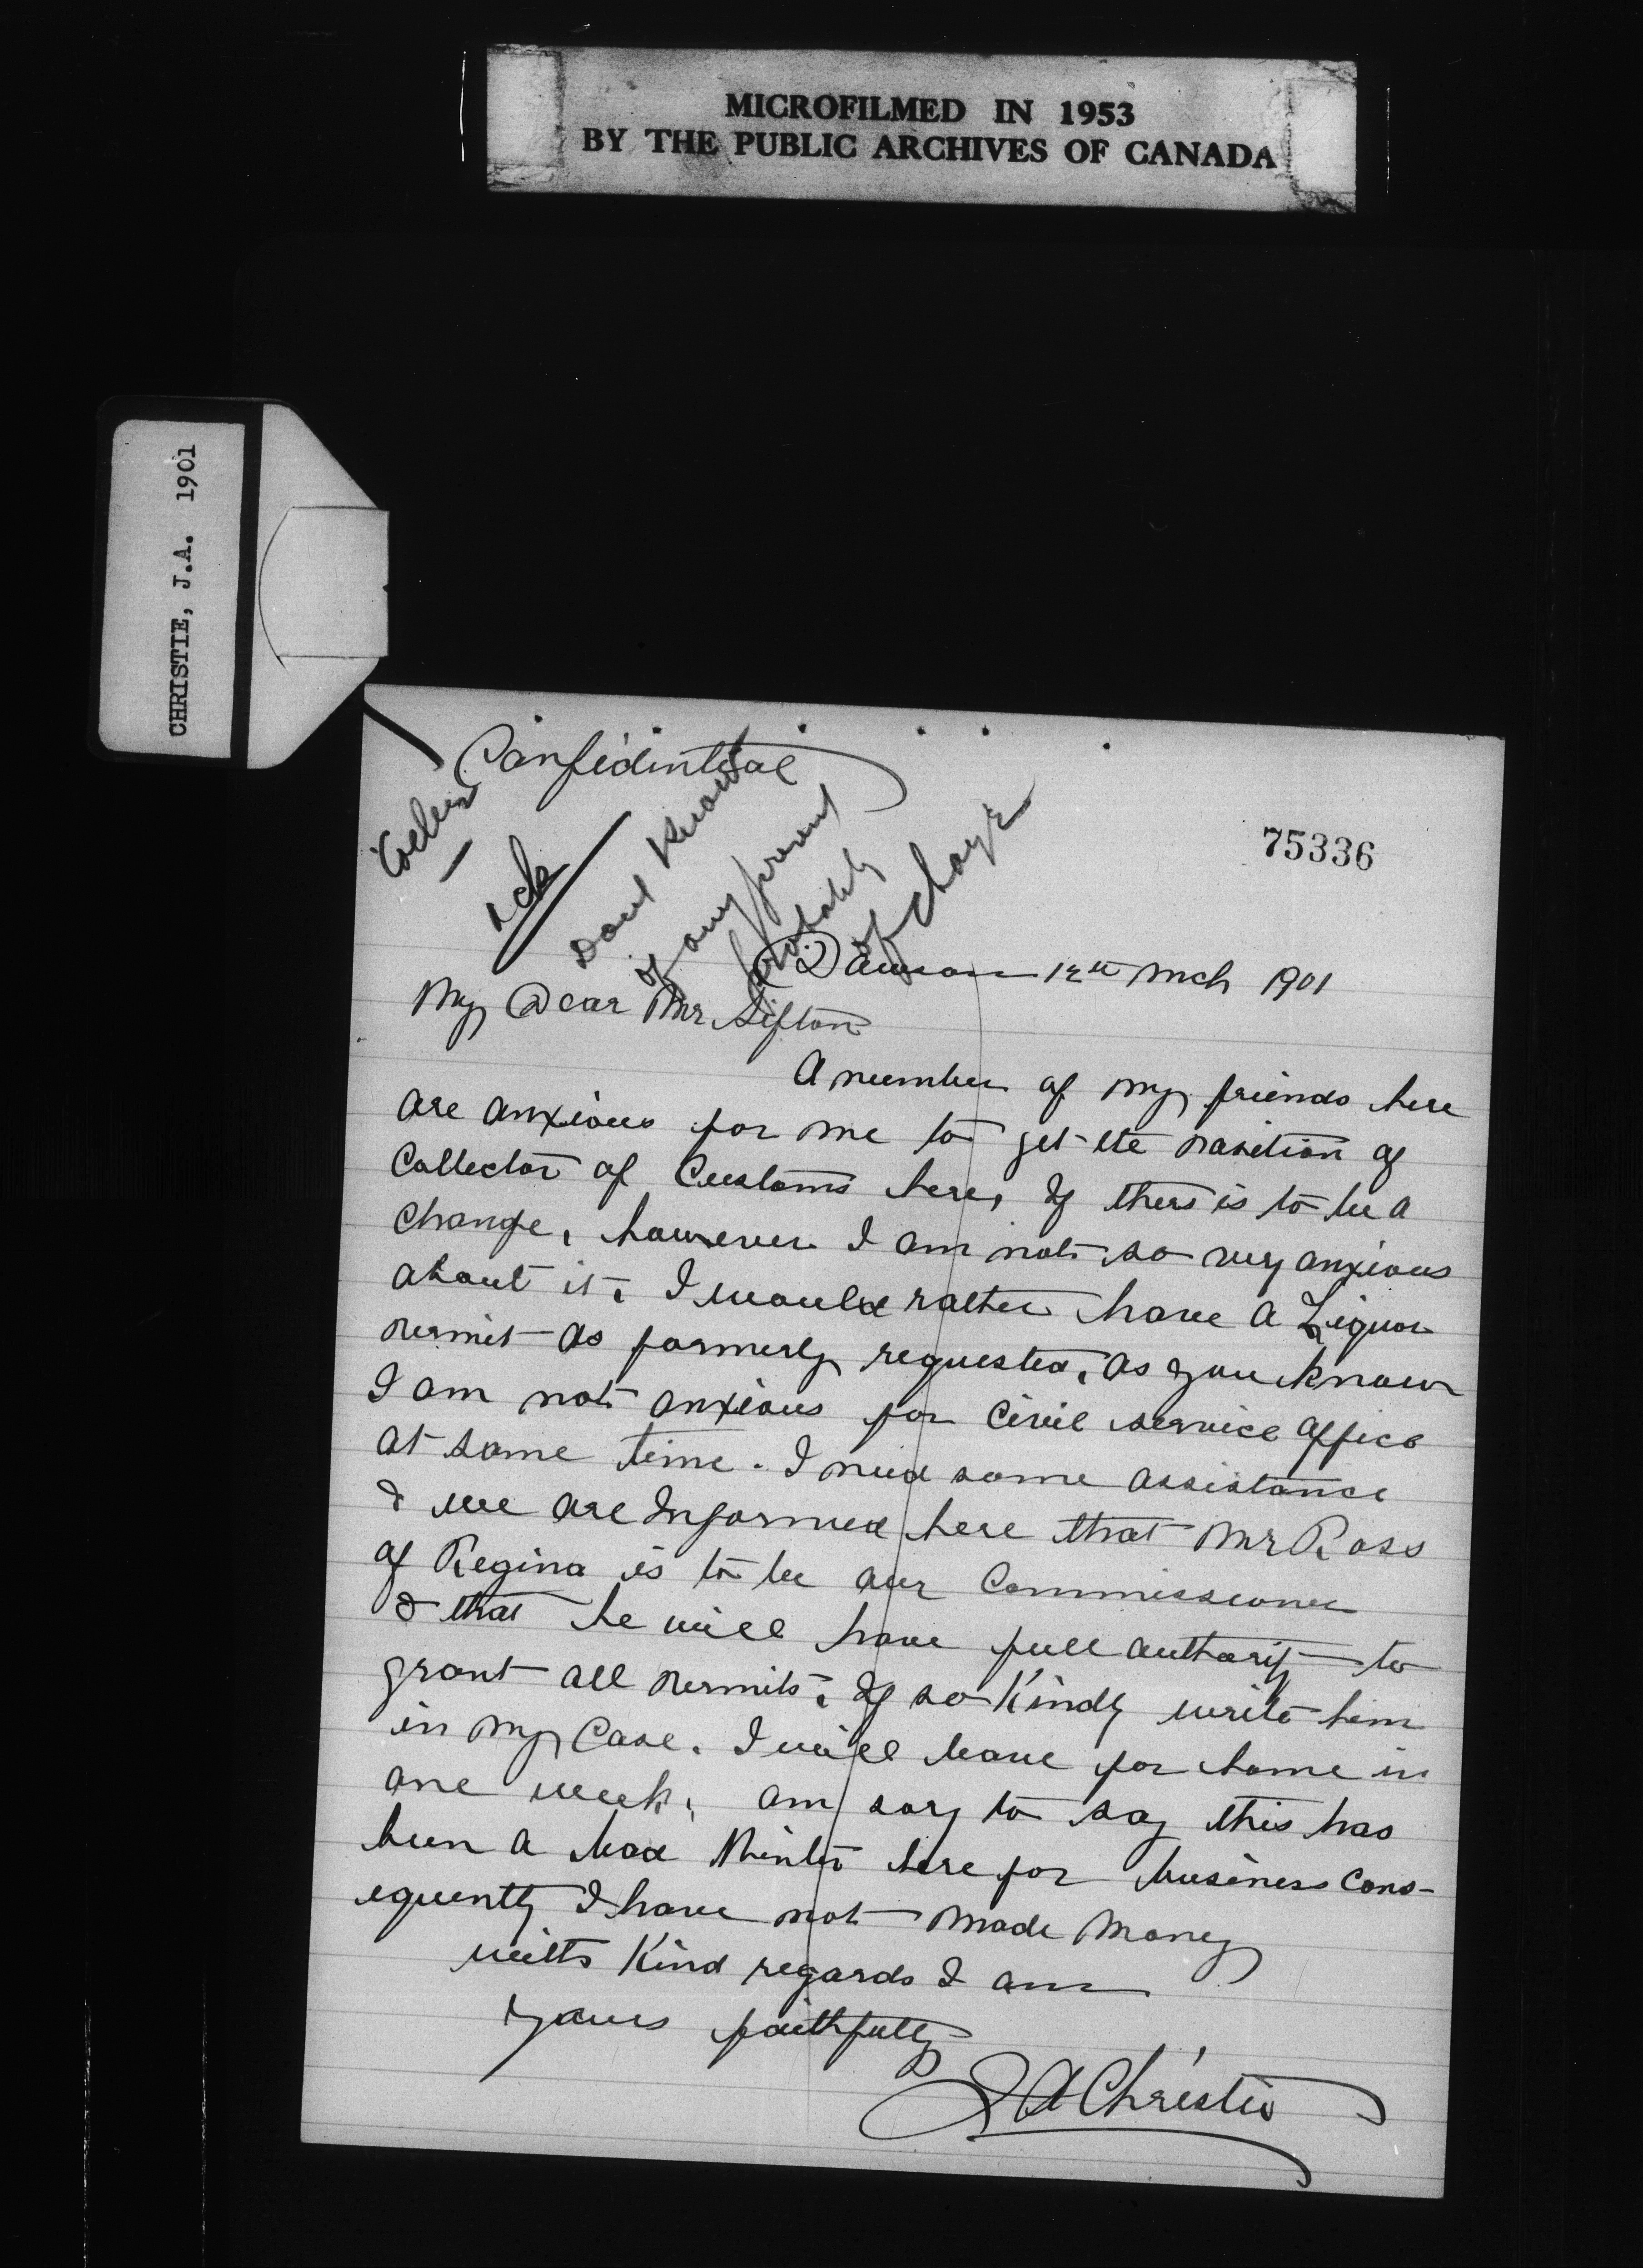 MICROFILMED IN 1953
BY THE PUBLIC ARCHIVES OF CANADA
CHRISTIE, J.A. 1901
Confidintial
ack
Dont know
of any present
probability
of change
75336
Dawson 12th Mch 1901
My Dear Mr Sifton
A number of my friends here
are anxious for me to get the position of
Collector of Customs here, If thers is to be a
change, however I am not so very anxious
about it, I would rather have a Liquor
permit as formerly requested, as you know
I am not anxious for Civil service office
at same time. I need some assistance
& we are Informed here that Mr Ross
of Regina is to be our Commissioner
& that he will have full authority to
grant all permits, If so Kindly write him
in my case. I will leave for home in
one week, am sory to say this has
been a bad Winter here for business cons-
equently I have not made money
with Kind regards I am
yours faithfully
JA Christie